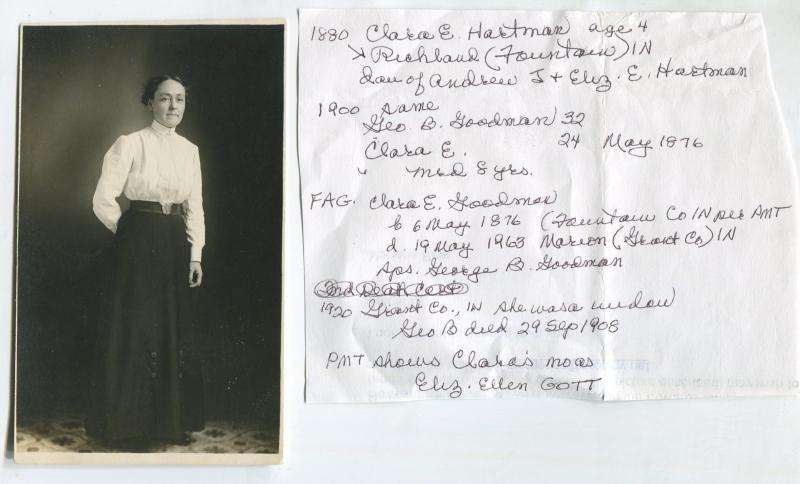 1880 Clara E. Hartman age 4
Richland (Fountain) IN
dau of Andrew J + Eliz. E. Hartman
1900 same
Geo. B. Goodman 32
Clara E. 24 May 1876
" mrd 8 yrs.
FAG. Clara E. Goodman
b 6 May 1876 (Fountain Co IN per AMT
d. 19 May 1963 Marion (Grant Co) IN
Sps. George B. Goodman
1920 Grant Co., IN she was a widow
Geo B died 29 Sep 1908
PMT shows Clara's mo as
Eliz. Ellen GOTT